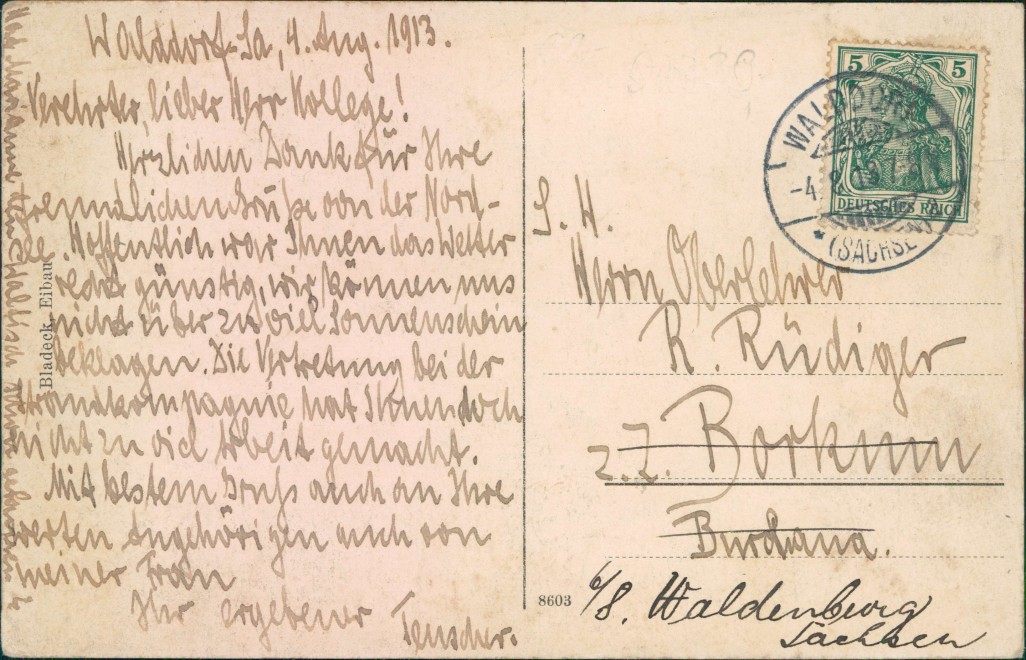 Walddorf-Sa, 4. Aug. 1913.
Verehrter, lieber Herr Kollege!
Herzlichen Dank für Ihre
freundlichen Grüße von der Nord-
see. Hoffentlich war Ihnen das Wetter
recht günstig, wir können uns
nicht über zu viel Sonnenschein
beklagen. Die Vertretung bei der
Strandkompagnie hat Ihnen doch
nicht zu viel Arbeit gemacht.
Mit bestem Gruß auch an Ihre
werten Angehörigen auch von
meiner Frau
Ihr ergebener
Bladeck, Eibau
8603
5 5
DEUTSCHES REICH
WALDDORF
-4.8.13
* (SACHSEN)
S. H.
Herrn Oberlehrer
R. Rüdiger
z. Z. Borkum
Burchana.
6/8. Waldenburg
Sachsen